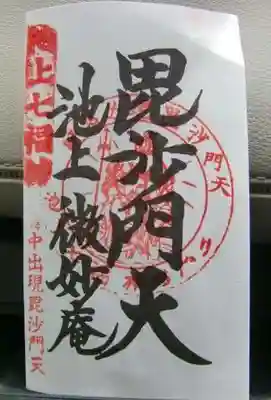 毘沙門天
池上 微妙庵
上七福
中出現毘沙門天
沙門天